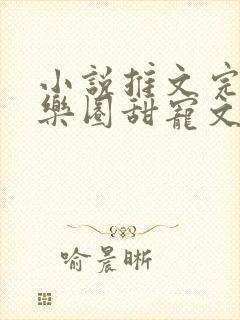 小説推文完
樂圈甜寵文
喻晨晰